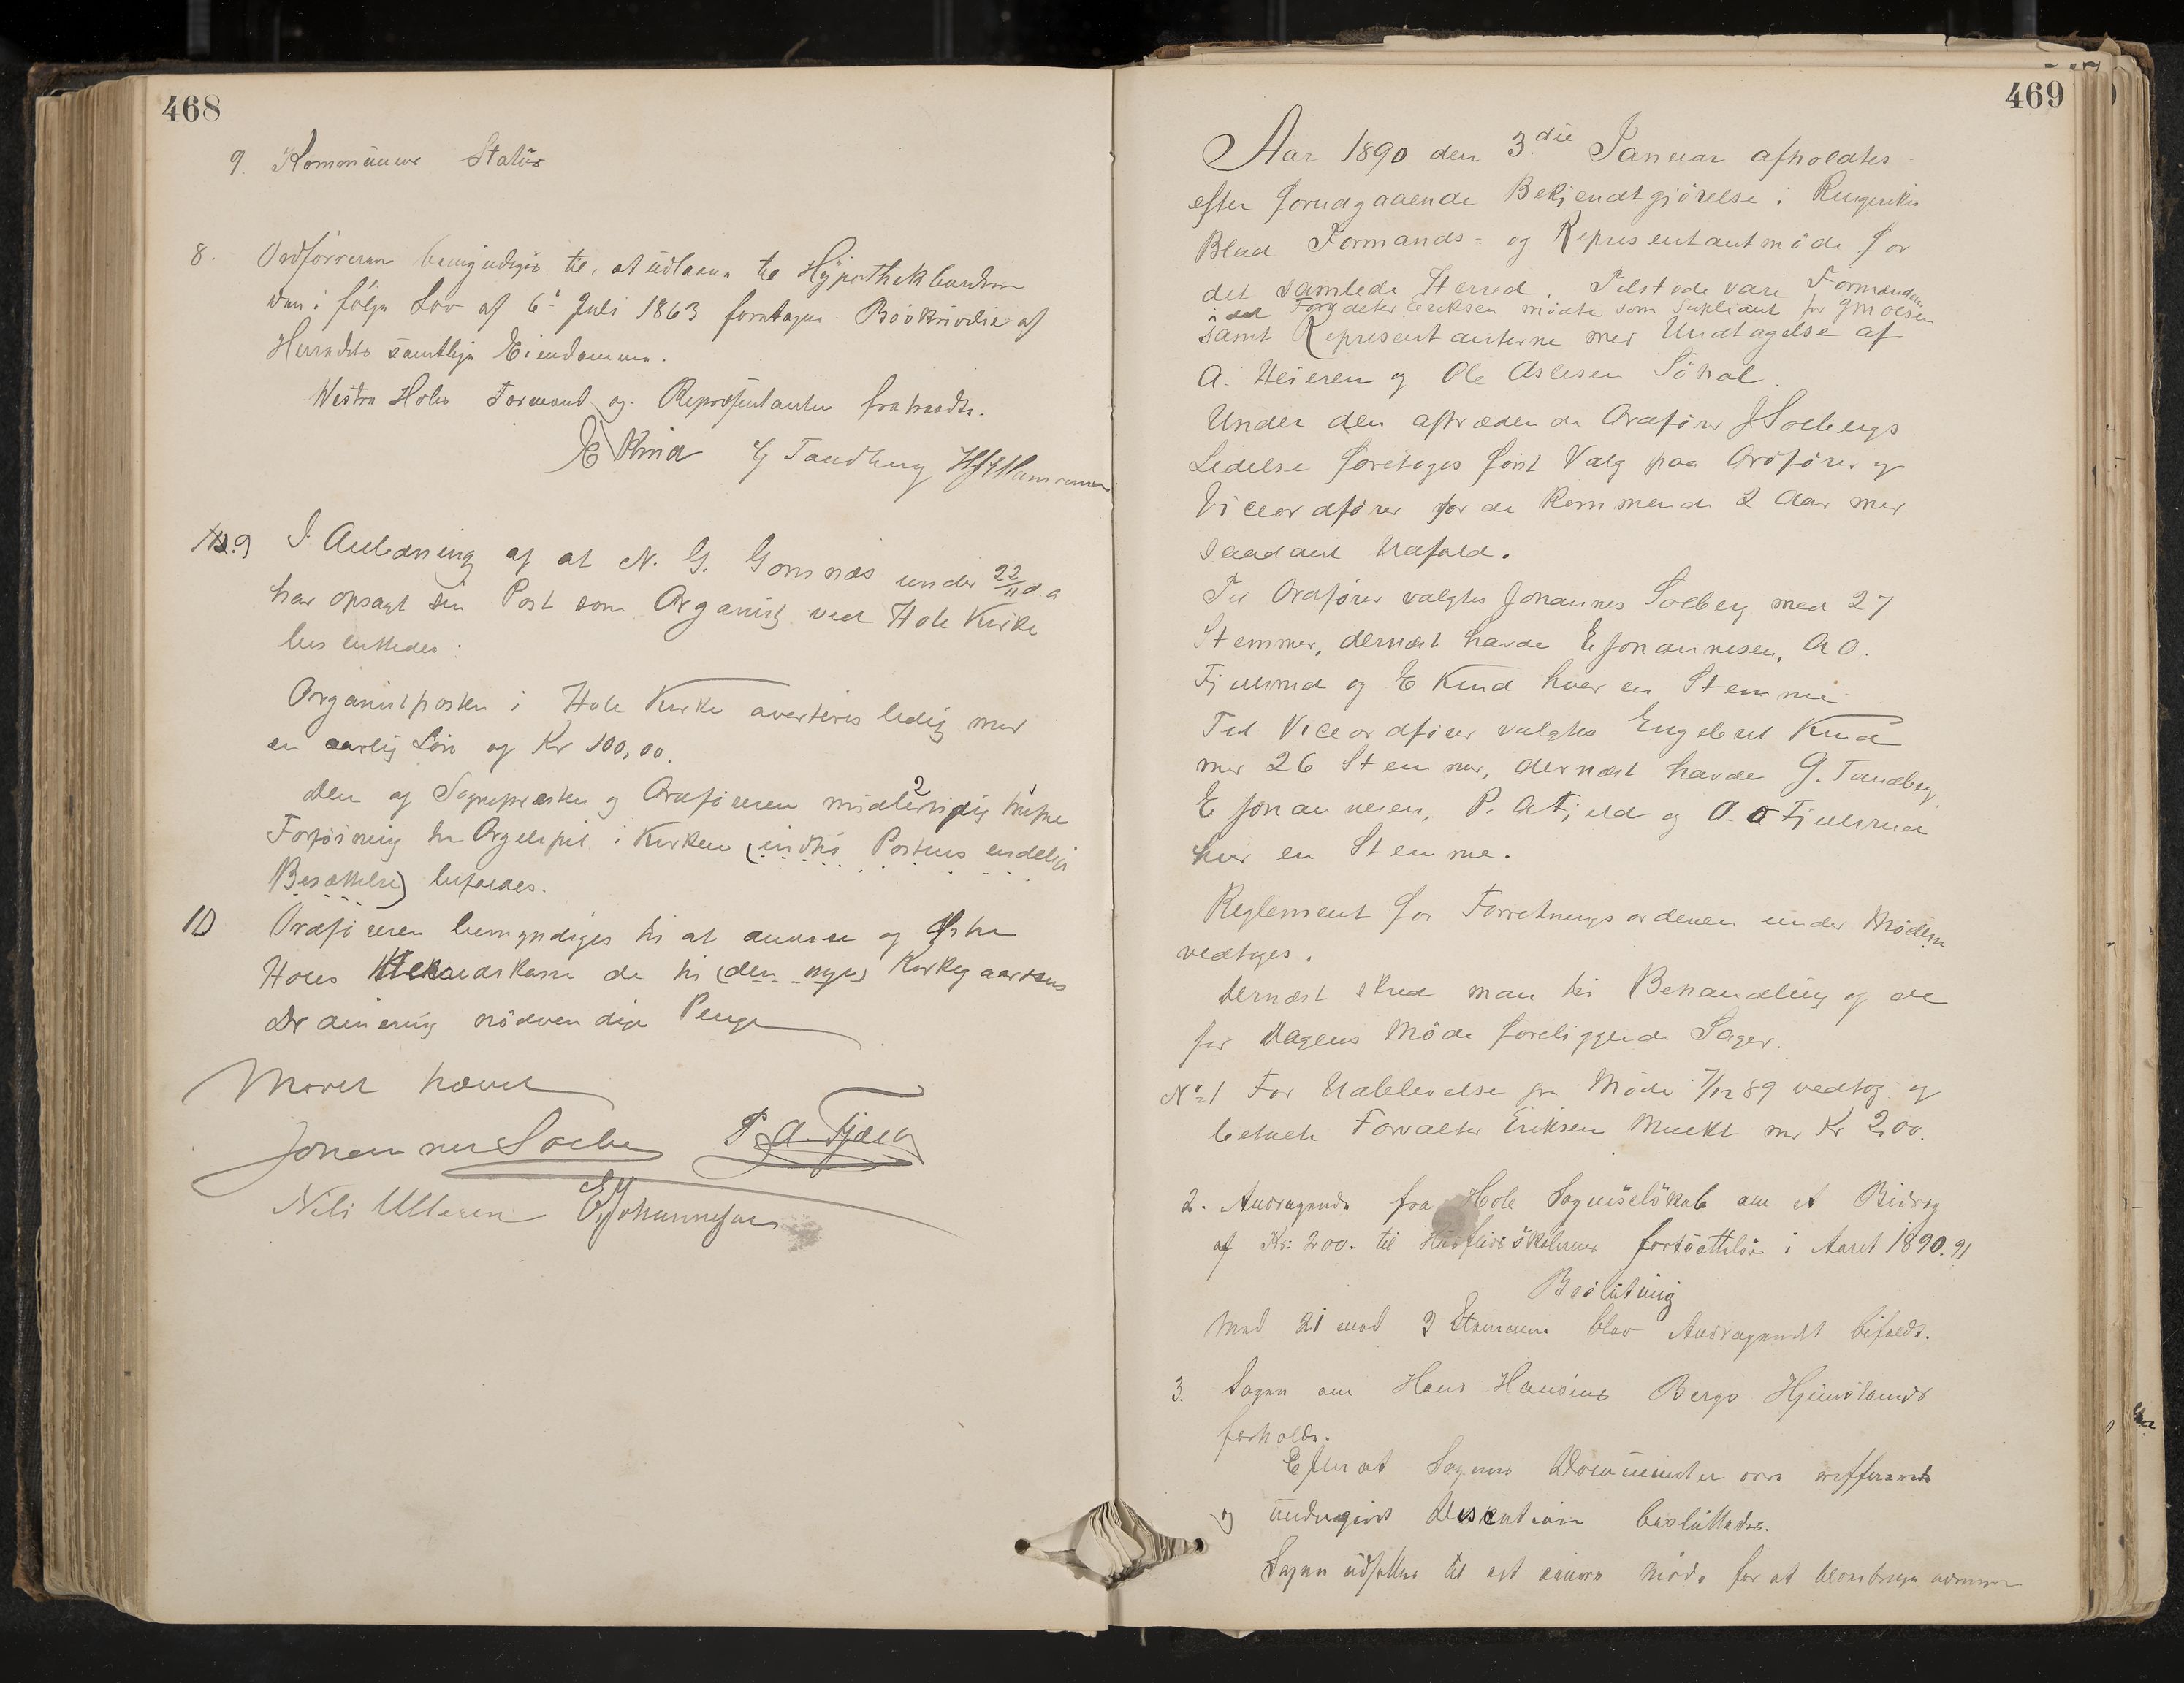 468
9. Kommunens Status
8. Ordföreren bemyndiges til, at udlaane til Hypothekbanken
den i følge Lov af 6te Juli 1863 foretagne Beskrivelse af
Herredets samtlige Eiendomme.
Vestre Holes Formænd og Repræsentanter fratraadte.
E Knia G Tandberg
No. 9 I Anledning af at N. G. Gomnæs under 22/11 d. a
har opsagt sin Post som Organist ved Hole Kirke
besluttedes:
Organistposten i Hole Kirke averteres ledig med
en aarlig Løn af Kr 100,00.
Den af Sognepresten og Ordføreren midlertidig trufne
Forføining for Orgelspil i Kirken (indtil Postens endelige
Besættelse) bifaldes.
10 Ordføreren bemyndiges til at anvise af Østre
Holes Herredskasse de til (den nye) Kirkegaardens
Drainering nödvendige Penge
Mødet hævet
Johannes Solberg P. A. Fjeld
Nils Ulleren E Johannesen
469
Aar 1890 den 3.die Januar afholdtes
efter forudgaaende Bekjendtgjörelse i Ringerikes
Blad Formands= og Representantmöde for
det samlede Herred. Tilstede vare Formændene
Eriksen mödte som Supleant for G Moesen
samt Representanterne med Undtagelse af
A. Heieren og Ole Aslesen Söhol.
Under den aftrædende Ordförer J Solbergs
Ledelse foretoges först Valg paa Ordförer og
Viceordförer for de kommende 2 Aar med
saadant Udfald.
Til Ordförer valgtes Johannes Solberg med 27
Stemmer, dernæst havde E Johannesen, A O.
Fjeldstad og E Knia hver en Stemme
Til Viceordförer valgtes Engebret Knia
med 26 Stemmer, dernæst havde G. Tandberg,
E Johannesen, P. A Fjeld og A. O Fjeldstad
hver en Stemme.
Reglement for Forretningsordenen under Möderne
vedtoges.
Dernæst skred man til Behandling af de
for Dagens Möde foreliggende Sager.
No 1 For Udeblevelse fra Möde 7/12 89 vedtog at
betale Forvalter Eriksen Mulkt med Kr 2,00.
2. Andragende fra Hole Sogneselskab om et Bidrag
af Kr: 200. til Husflidsskolernes fortsættelse i Aaret 1890.91
Beslutning
Med 21 mod 9 Stemmer blev Andragendet bifaldt.
3. Sagen om Hans Hansens Bergs Hjemstavns
forholde.
Efter at Sagens Documenter vare refererede
og undergivet Discution besluttedes.
Sagen udsættes til et senere Möde for at